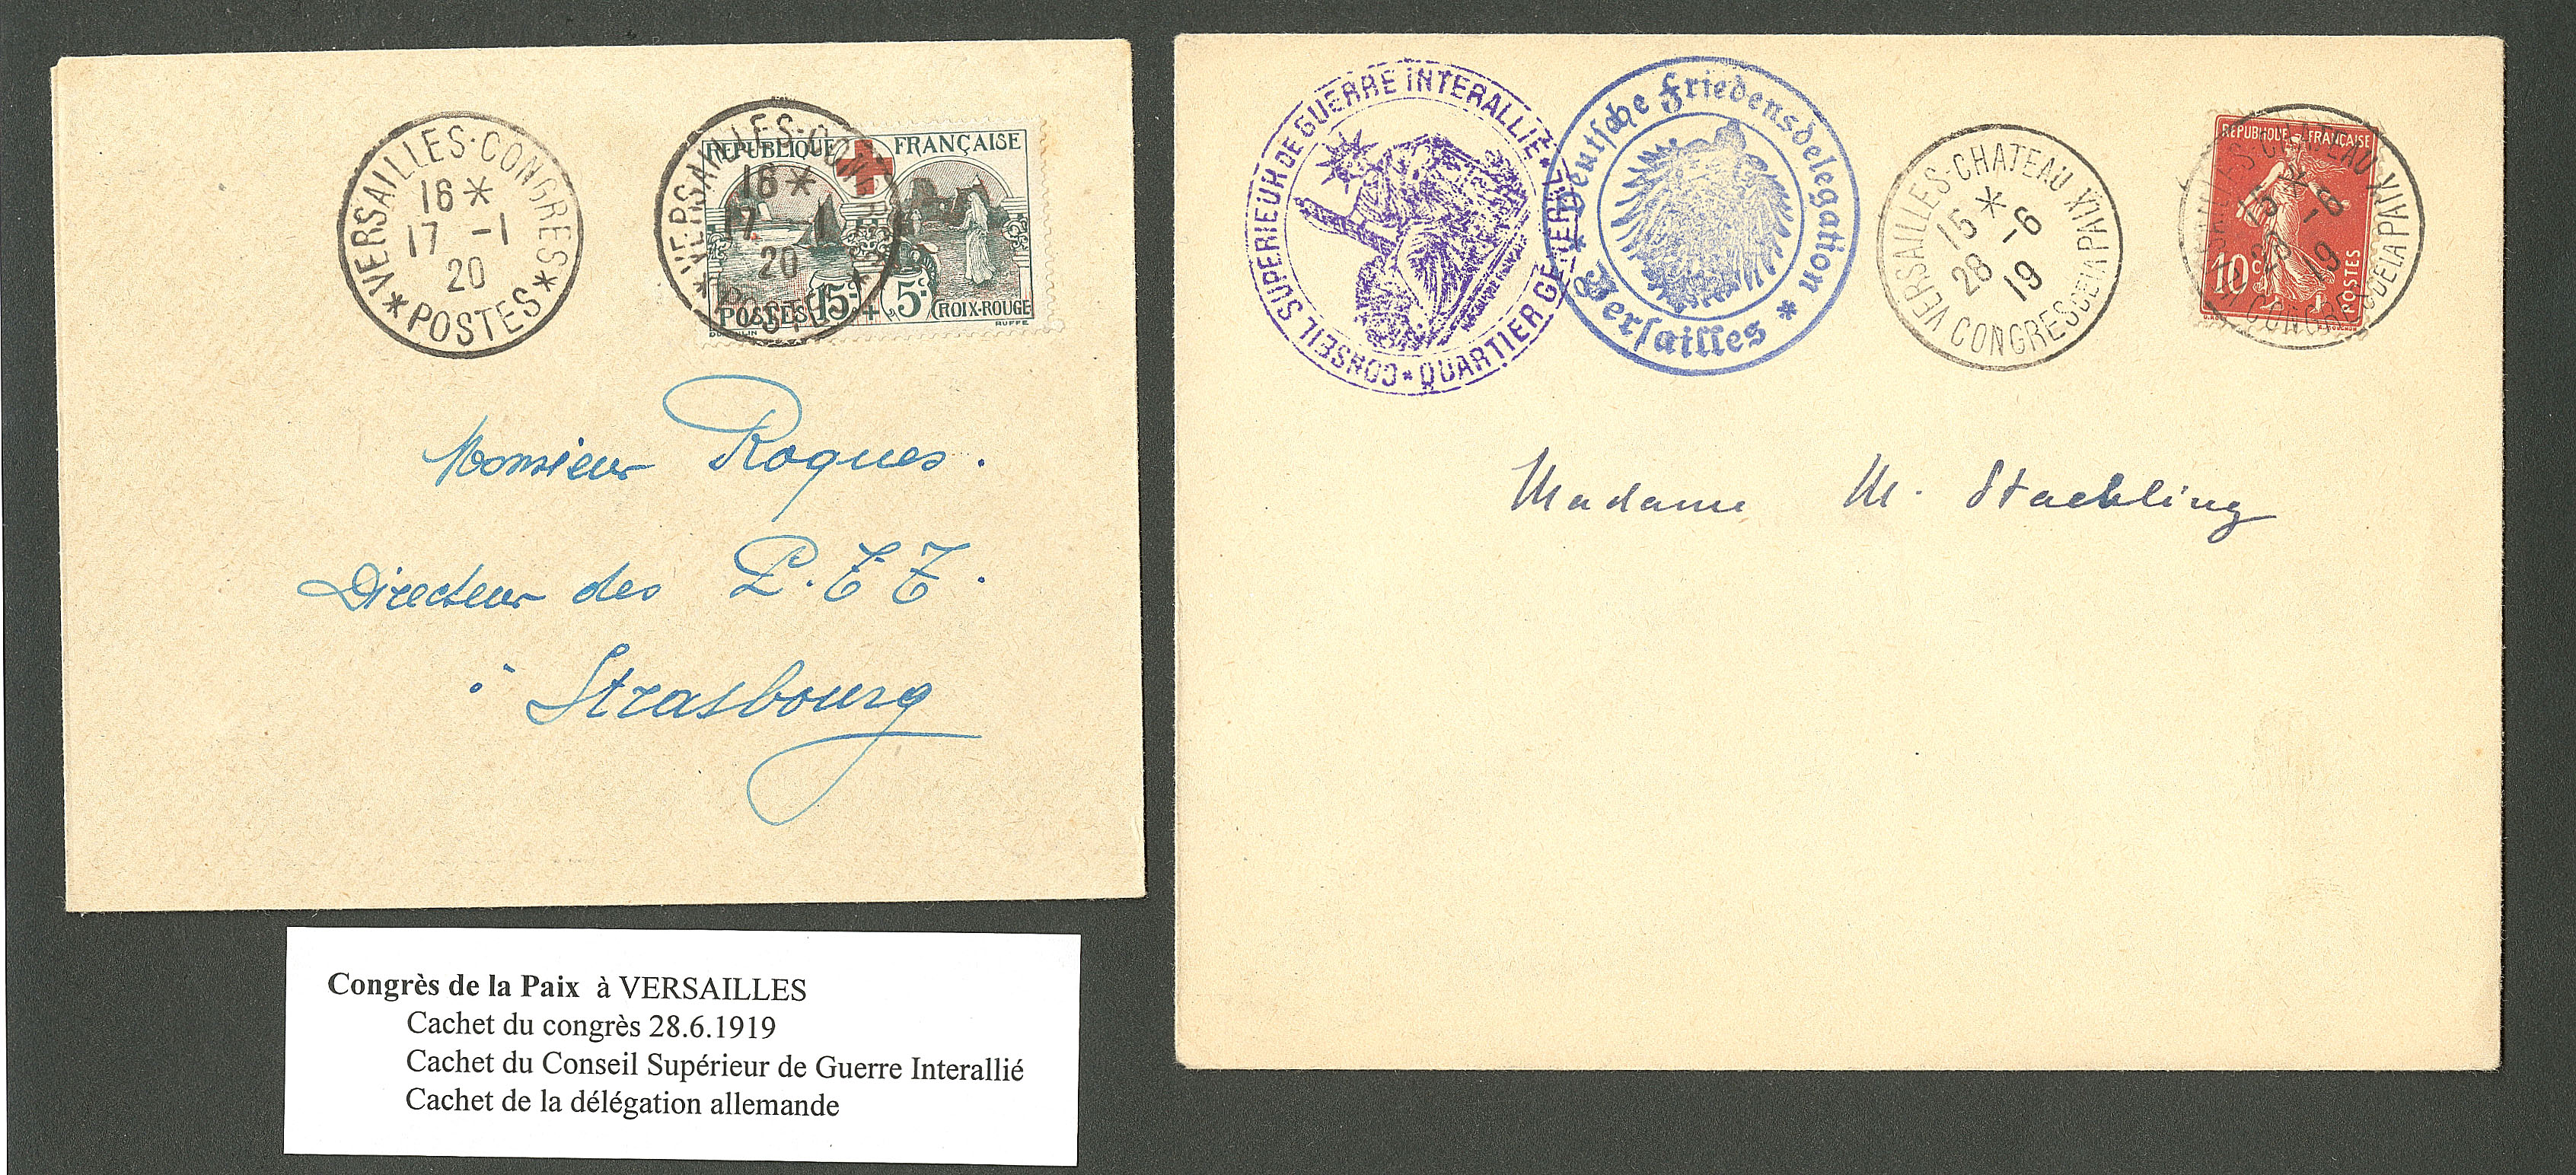 *VERSAILLES-CONGRES*
16*
17 -1
20
POSTES
*VERSAILLES-CONGRES*
16*
17 -1
20
POSTES
REPUBLIQUE FRANÇAISE
POSTES 15c + 5c CROIX-ROUGE
RUFFE
Monsieur Roques.
Directeur des P.T.T.
à Strasbourg
CONSEIL SUPERIEUR DE GUERRE INTERALLIÉ
* QUARTIER GENERAL *
Deutsche Friedensdelegation
* Versailles *
VERSAILLES-CHATEAU XIX
15* -6
28 19
CONGRES DE LA PAIX
REPUBLIQUE FRANÇAISE
10c POSTES
CHATEAU XIX
15* -6
28 19
CONGRES DE LA PAIX
Madame M. Staehling
Congrès de la Paix à VERSAILLES
Cachet du congrès 28.6.1919
Cachet du Conseil Supérieur de Guerre Interallié
Cachet de la délégation allemande